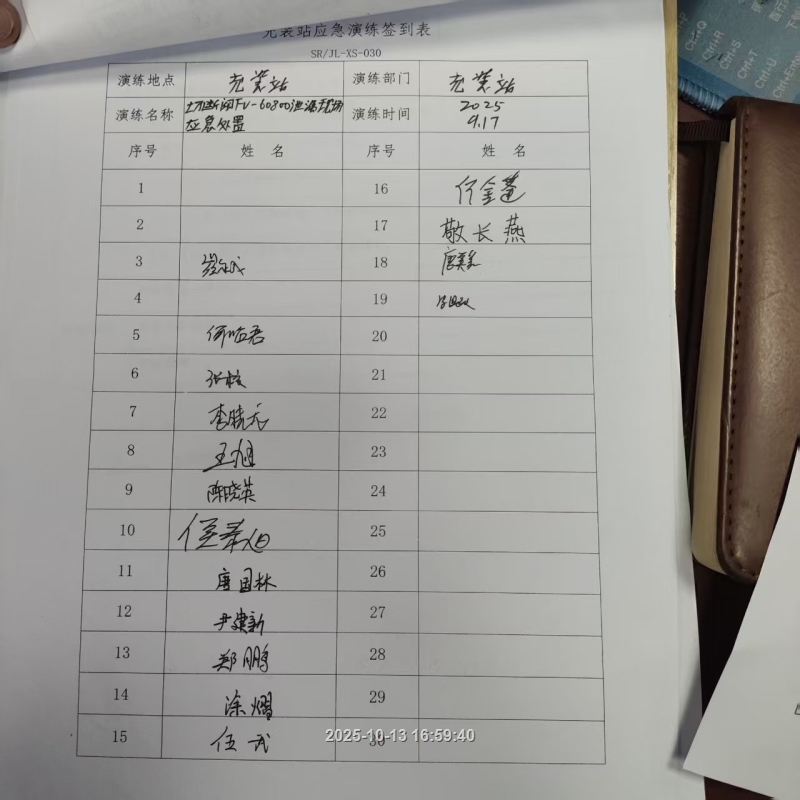 充装站应急演练签到表
SR/JL-XS-030
演练地点 充装站 演练部门 充装站
演练名称 切断阀FV-60800泄漏现场应急处置 演练时间 2025 9.17
序号 姓名 序号 姓名
1 16
2 17 敬长燕
3 18
4 19
5 何临君 20
6 张 21
7 李晓元 22
8 王旭 23
9 陈晓英 24
10 25
11 唐国林 26
12 尹建新 27
13 郑鹏 28
14 涂熠 29
15 伍武 30
2025-10-13 16:59:40
Ctrl+Q
Ctrl+R
Ctrl+S
Ctrl+T
Ctrl+U